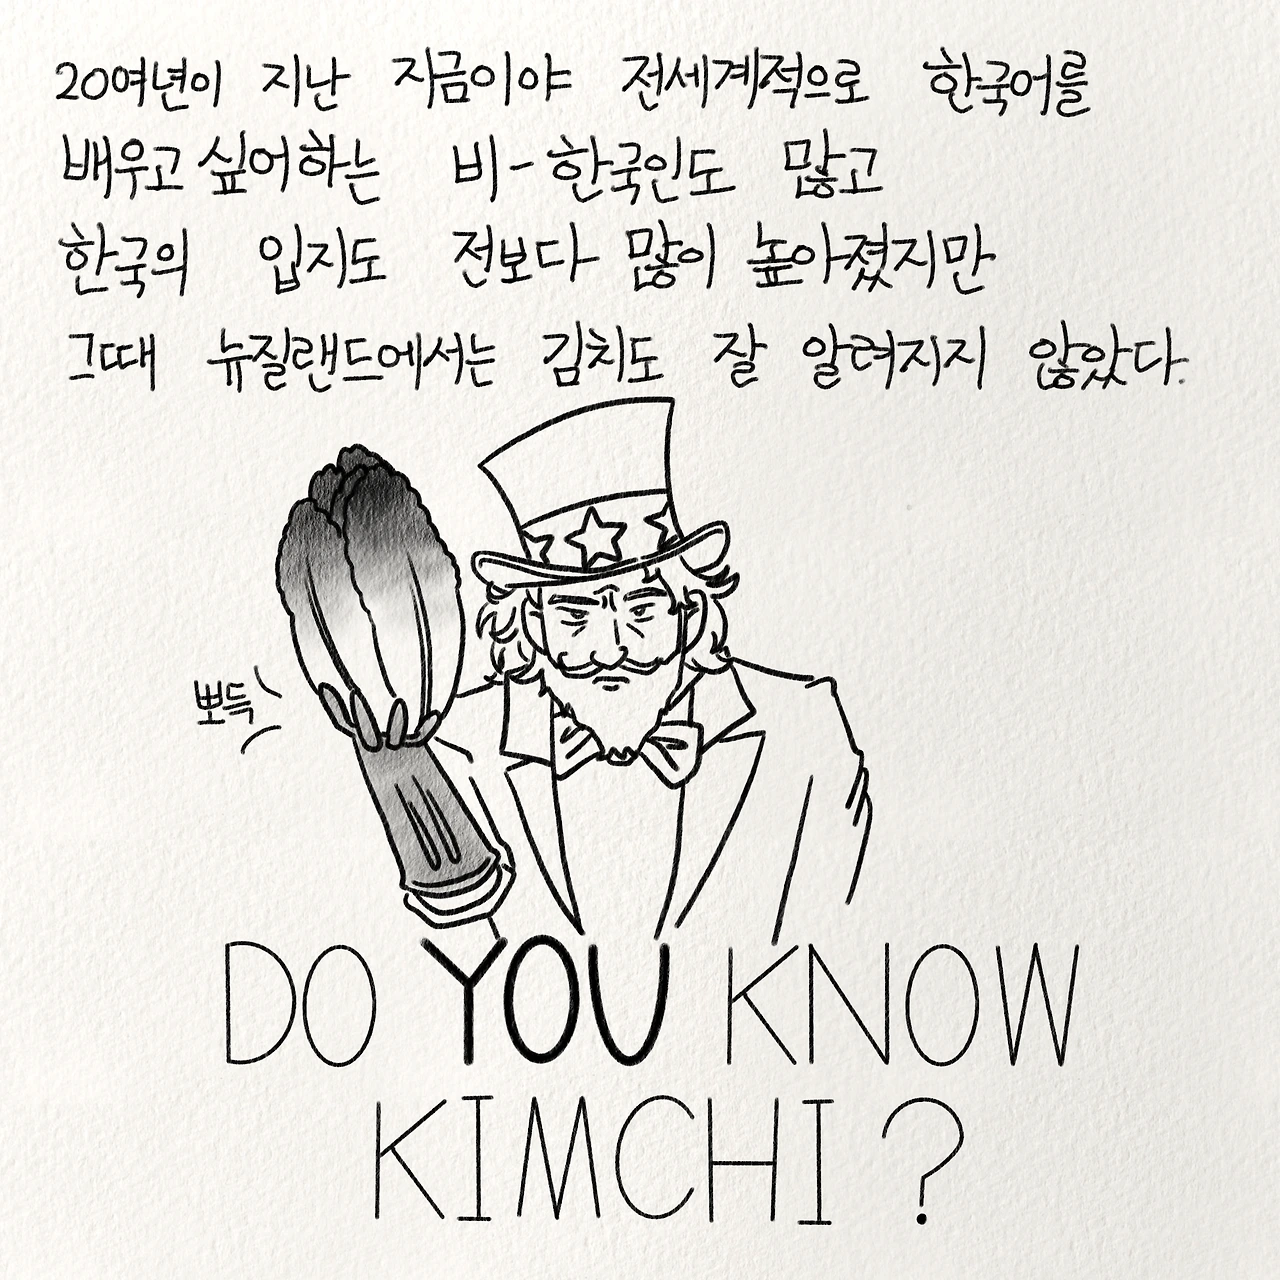 20여년이 지난 지금이야 전세계적으로 한국어를
배우고 싶어하는 비-한국인도 많고
한국의 입지도 전보다 많이 높아졌지만
그때 뉴질랜드에서는 김치도 잘 알려지지 않았다.
뽀득
DO YOU KNOW
KIMCHI ?